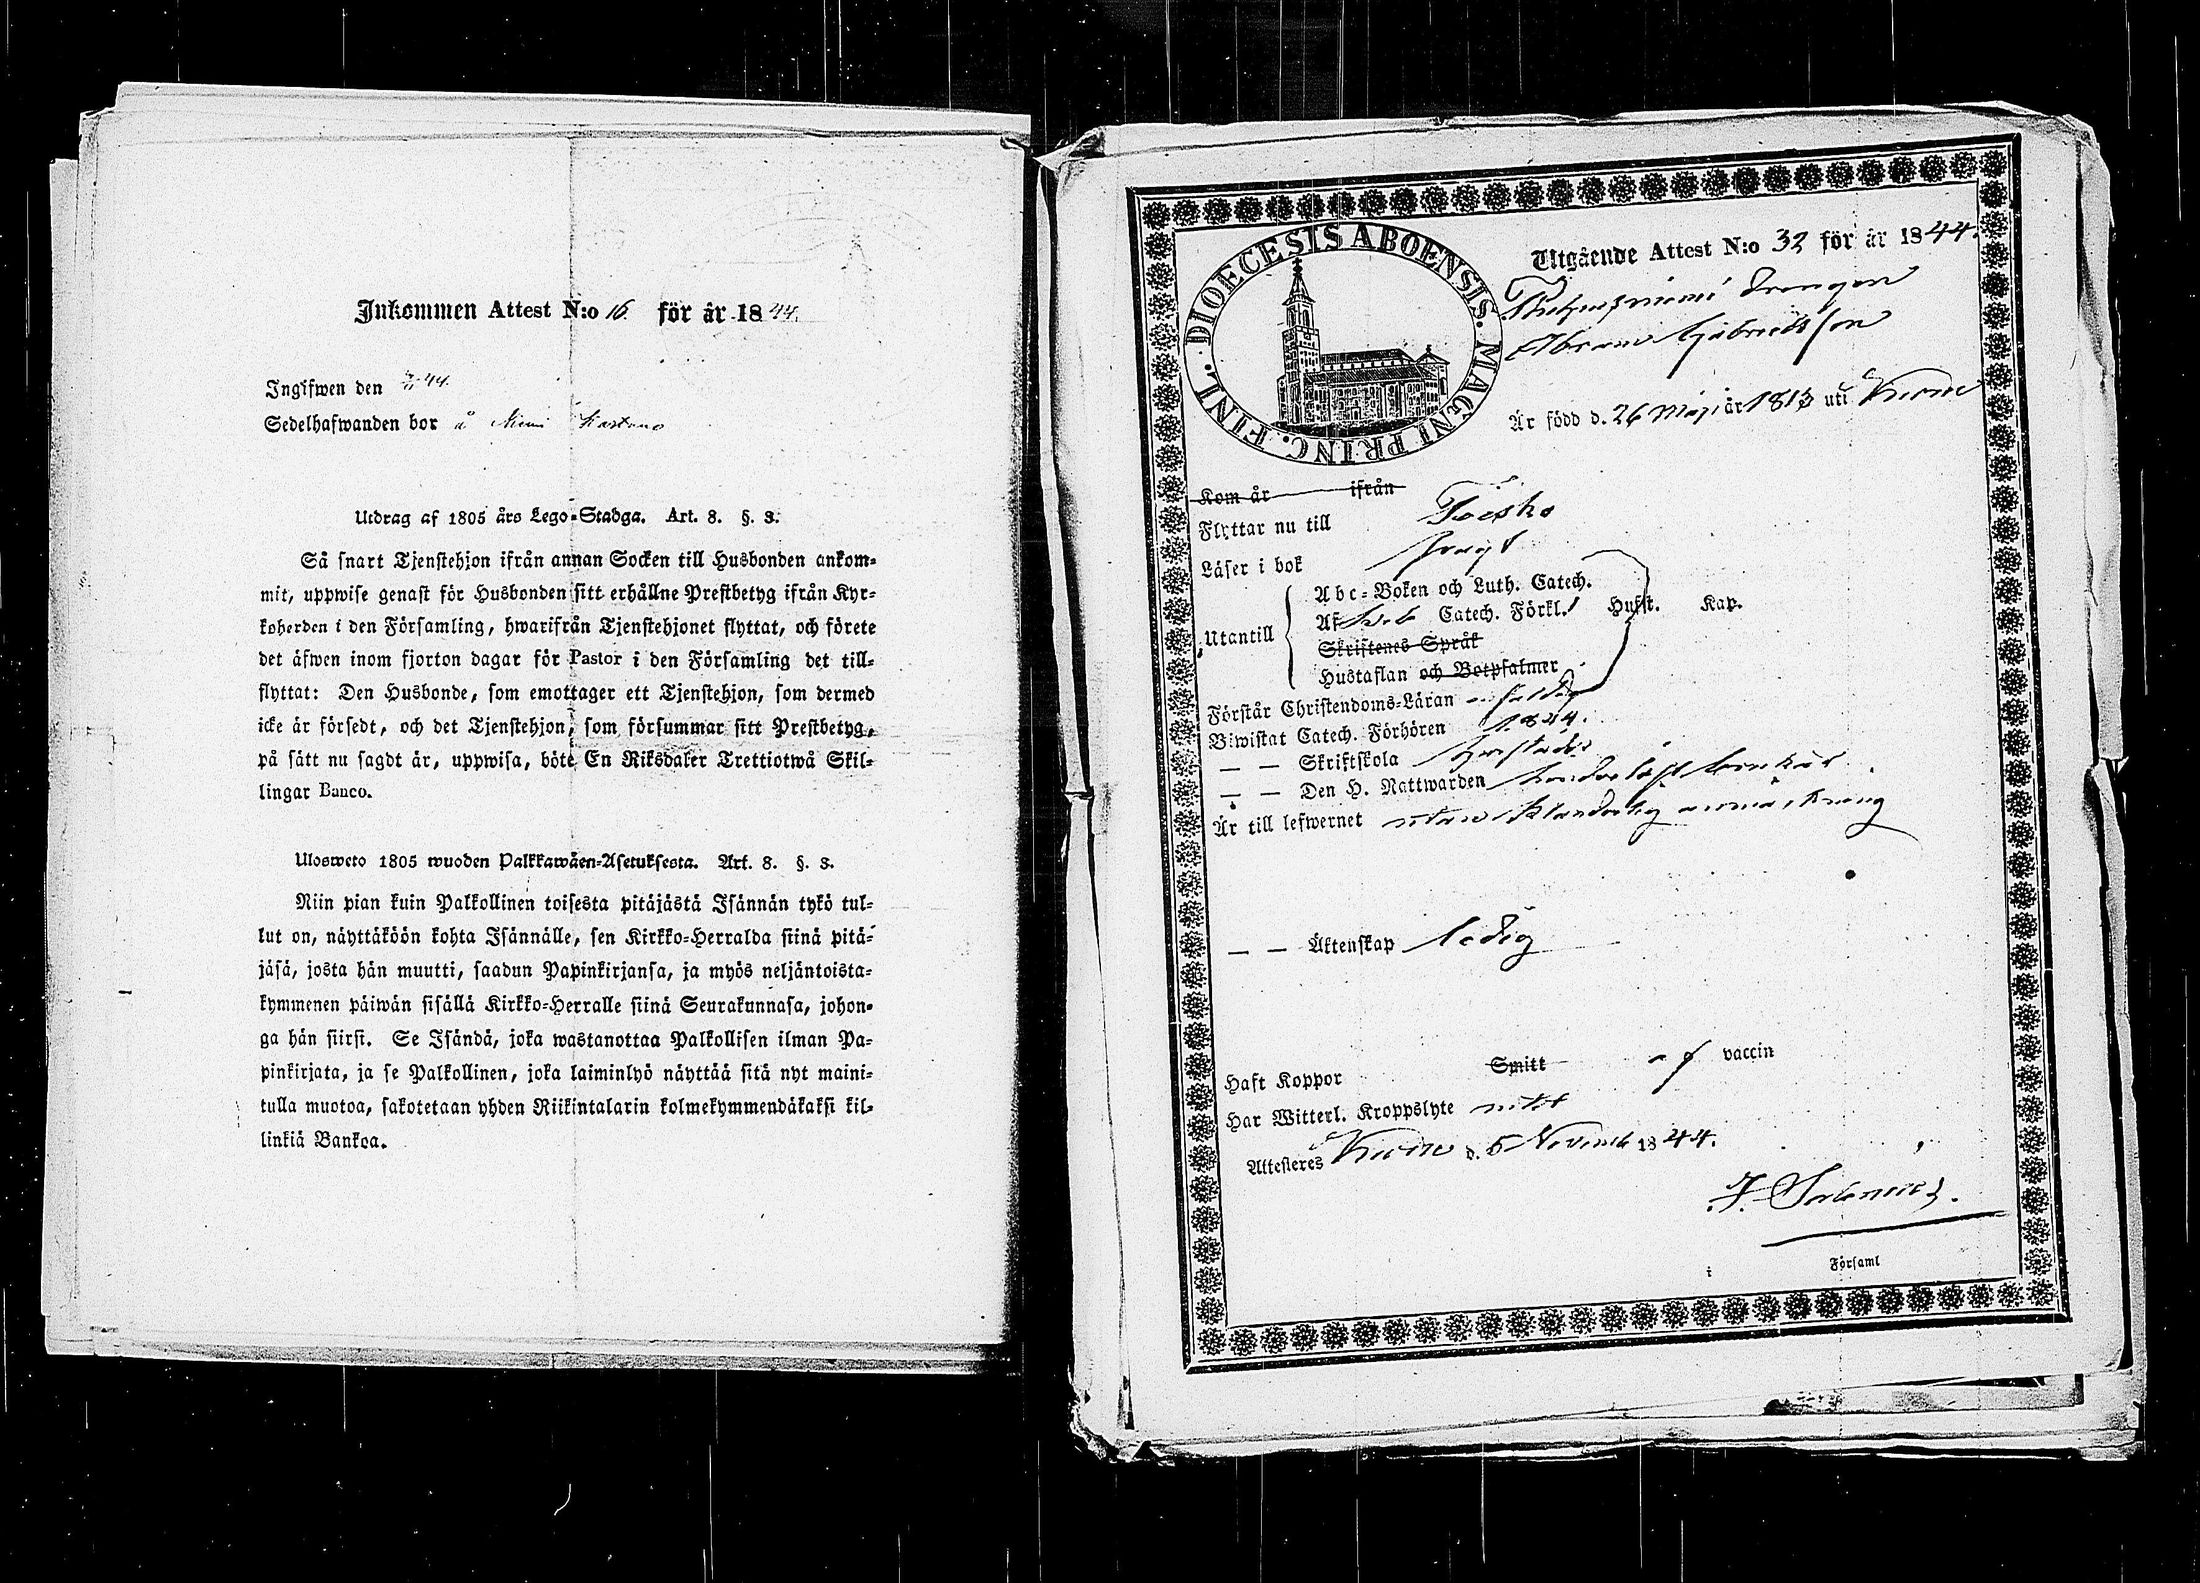 Inkommen Attest N:o 16 för år 1844.
Ingifwen den 44.
Sedelhafwanden bor å
Utdrag af 1805 års Lego-Stadga. Art. 8. §. 3.
Så snart Tjenstehjon ifrån annan Socken till Husbonden ankom-
mit, uppwise genast för Husbonden sitt erhållne Prestbetyg ifrån Kyr-
koherden i den Församling, hwarifrån Tjenstehjonet flyttat, och förete
det äfwen inom fjorton dagar för Pastor i den Församling det till-
flyttat: Den Husbonde, som emottager ett Tjenstehjon, som dermed
icke är försedt, och det Tjenstehjon, som försummar sitt Prestbetyg,
på sätt nu sagdt är, uppwisa, böte En Riksdaler Trettiotwå Skil-
lingar Banco.
Ulosweto 1805 wuoden Palkkawäen-Asetuksesta. Art. 8. §. 3.
Niin pian kuin Palkollinen toisesta pitäjästä Isännän tykö tul-
lut on, näyttäköön kohta Isännälle, sen Kirkko-Herralda siinä pitä-
jäsä, josta hän muutti, saadun Papinkirjansa, ja myös neljäntoista-
kymmenen päiwän sisällä Kirkko-Herralle siinä Seurakunnasa, johon-
ga hän siirsi. Se Isändä, joka wastanottaa Palkollisen ilman Pa-
pinkirjata, ja se Palkollinen, joka laiminlyö näyttää sitä nyt maini-
tulla muotoa, sakotetaan yhden Riikintalarin kolmekymmendäkaksi kil-
linkiä Bankoa.
DIOECESIS ABOENSIS. MAGNI PRINC. FINL.
Utgående Attest N:o 32 för år 1844.
Drengen
Abram Gabrielsson
Är född d. 26 Maji år 1813 uti Kumo
Kom år ifrån
Flyttar nu till Töfsko
Läser i bok
Utantill
Abc-Boken och Luth. Catech.
Af Sveb Catech. Förkl. Husst. Kap.
Skriftenes Språk
Hustaflan och Botpsalmer
Förstår Christendoms-Läran enfaldig
Biwistat Catech. Förhören 1844.
— — Skriftskola
— — Den H. Nattwarden
Är till lefwernet utan klanderlig anmärkning
— — Äktenskap ledig
Haft Koppor Smitt af vaccin
Har Witterl. Kroppslyte intet
Attesteres Kumo d. 5 Novemb 1844.
F. Salenius.
i Församl